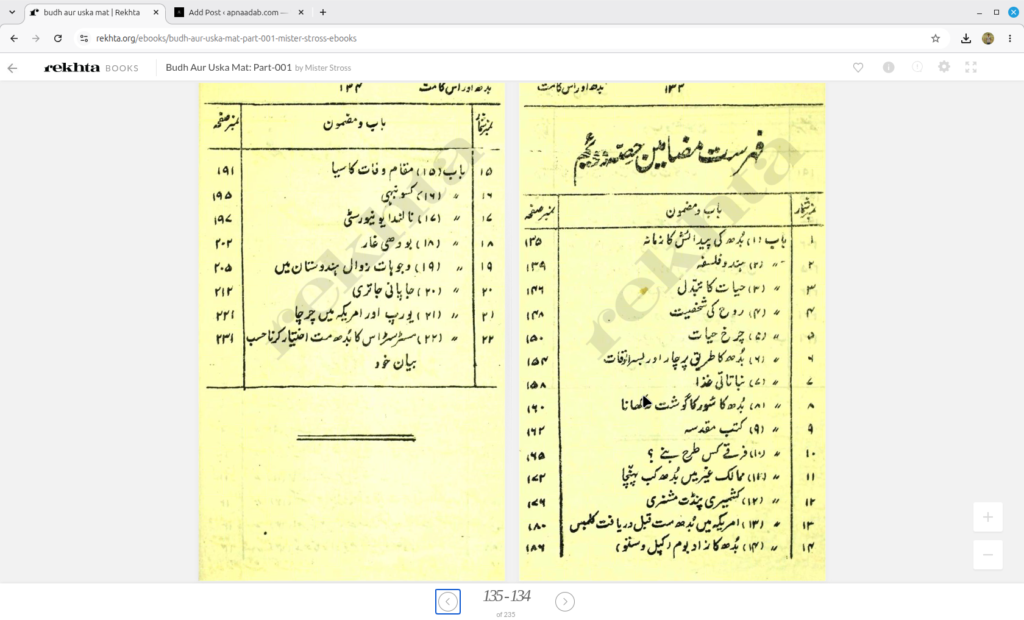 budh aur uska mat | Rekhta
Add Post ‹ apnaadab.com —
rekhta.org/ebooks/budh-aur-uska-mat-part-001-mister-stross-ebooks
rekhta BOOKS
Budh Aur Uska Mat: Part-001 by Mister Stross
۱۳۳ بدھ اور اس کا مت
فہرست مضامین حصہ
نمبر شمار باب و مضمون نمبر صفحہ
۱ باب (۱) بُدھ کی پیدائش کا زمانہ ۱۳۵
۲ 〃 (۲) ہندو فلسفہ ۱۳۹
۳ 〃 (۳) حیات کا تبدل ۱۴۶
۴ 〃 (۴) روح کی شخصیت ۱۴۸
۵ 〃 (۵) چرخ حیات ۱۵۰
۶ 〃 (۶) بُدھ کا طریق پرچار اور بسر اوقات ۱۵۴
۷ 〃 (۷) نباتاتی غذا ۱۵۸
۸ 〃 (۸) بُدھ کا سُور کا گوشت کھانا ۱۶۰
۹ 〃 (۹) کتب مقدسہ ۱۶۲
۱۰ 〃 (۱۰) فرقے کس طرح بنے ؟ ۱۶۵
۱۱ 〃 (۱۱) ممالک غیر میں بُدھ کب پہنچا ۱۷۲
۱۲ 〃 (۱۲) کشمیری پنڈت مشنری ۱۷۶
۱۳ 〃 (۱۳) امریکہ میں بُدھ مت قبل دریافت کلمبس ۱۸۰
۱۴ 〃 (۱۴) بُدھ کا زاد بوم (کپل وستو) ۱۸۶
بدھ اور اس کا مت ۱۳۴
نمبر شمار باب و مضمون نمبر صفحہ
۱۵ باب (۱۵) مقام وفات کاسیا ۱۹۱
۱۶ 〃 (۱۶) کسونبھی ۱۹۵
۱۷ 〃 (۱۷) نالندا یونیورسٹی ۱۹۷
۱۸ 〃 (۱۸) بودھی غار ۲۰۲
۱۹ 〃 (۱۹) وجوہات زوال ہندوستان میں ۲۰۵
۲۰ 〃 (۲۰) جاپانی جاتری ۲۱۲
۲۱ 〃 (۲۱) یورپ اور امریکہ میں چرچا ۲۲۱
۲۲ 〃 (۲۲) مسٹر سٹراس کا بُدھ مت اختیار کرنا حسب ۲۳۱
بیان خود
rekhta
rekhta
135 - 134
of 235